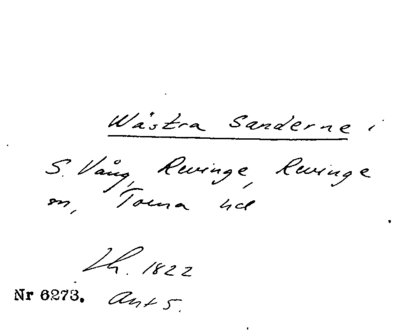 Wästra Sanderne i
S. Vång, Revinge, Revinge
sn, Torna hd
Lh. 1822
Nr 6273. Akt 5.